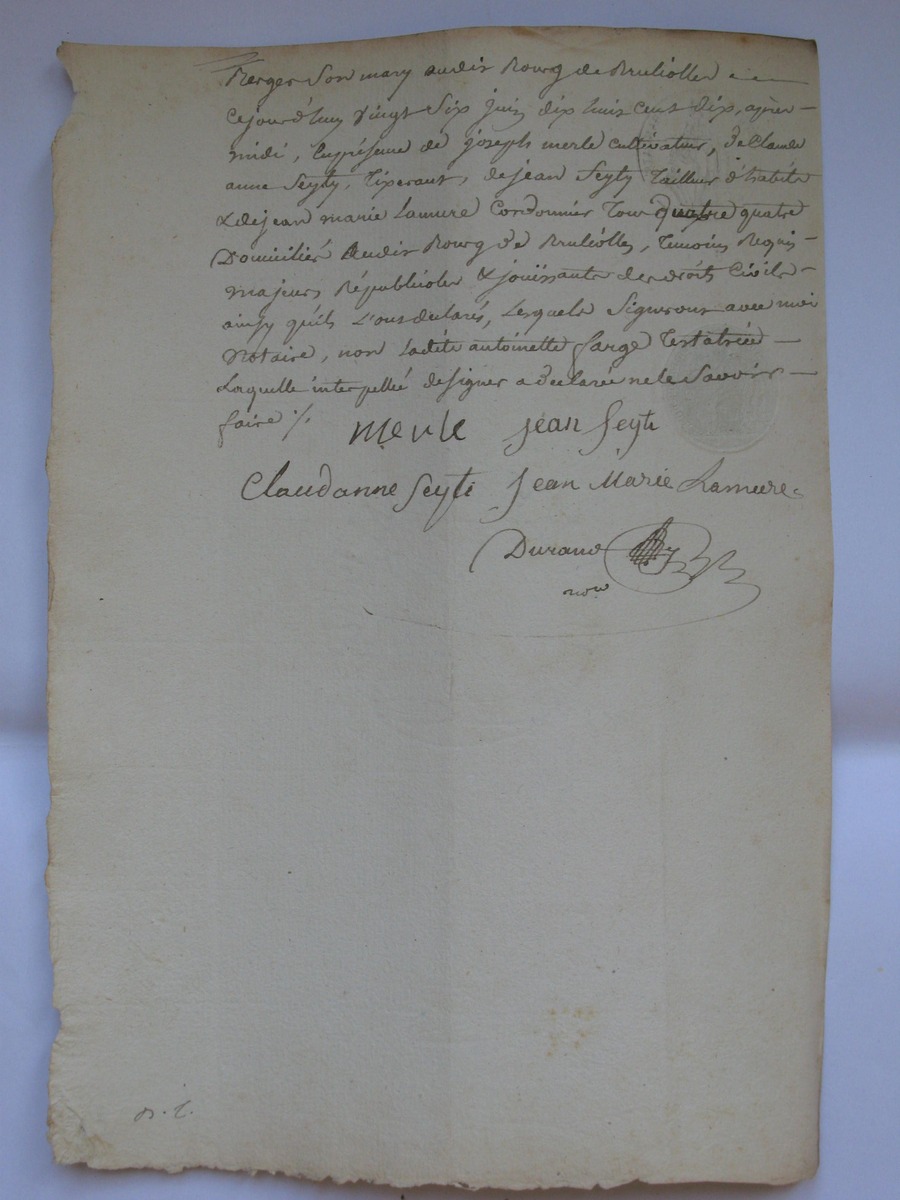 Berger Son mary audit Bourg de Bruliolles
Cejourd'huy vingt Six juin dix huit cent dix, après
midi, En présence de joseph merle cultivateur, de Claude
anne Seyty, Tixerant, de jean Seyty Tailleur d'habits
& de jean marie Lamure Cordonnier Tous quatre quatre
Domiciliés audit Bourg de Brulliolles, Temoins Requis
majeurs Républicoles & jouissants des droits Civils
ainsy qu'ils L'ont declarés, Lesquels Signeront avec moi
Notaire, non Ladite antoinette farge Testatrice
Laquelle interpellée de signer a declarée ne le Savoir
faire %.
merle jean Seyti
Claudanne Seyti Jean Marie Lamure
Durand
nore
n. t.